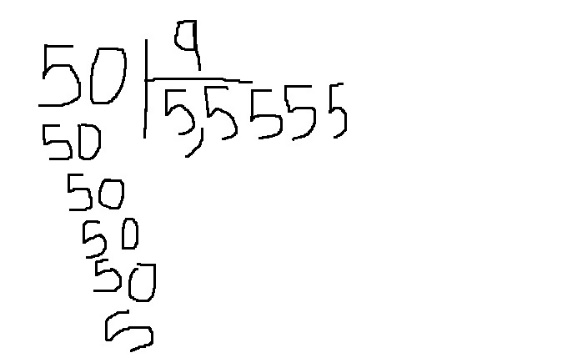 50 9
5,5555
50
50
50
50
5